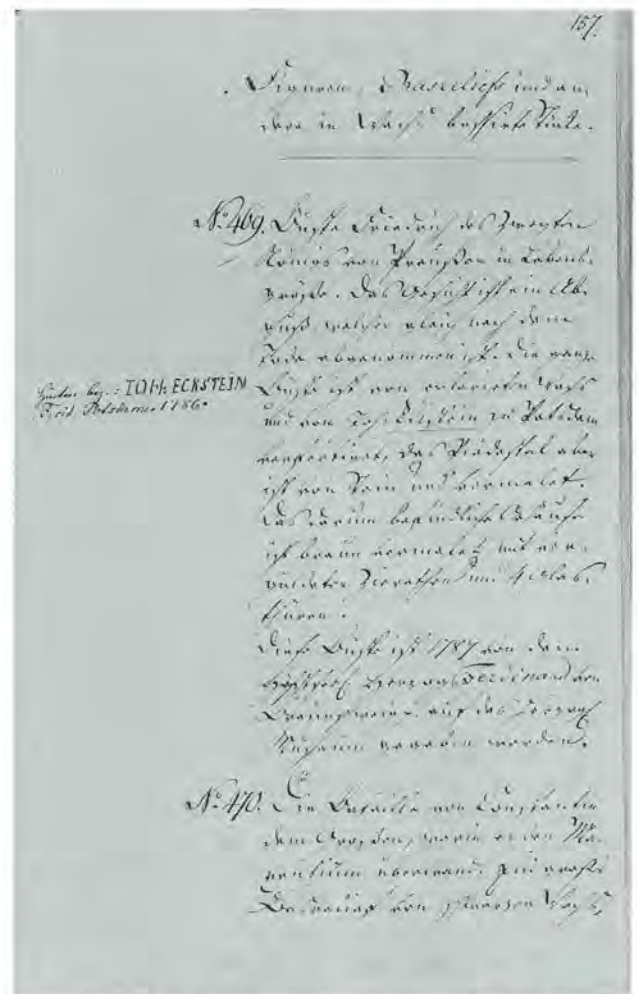 157.
Figuren, Basreliefs und an,
dere in Wachs bossirte Stücke.
No. 469. Büste Friedrich des Zweyten
Königs von Preußen in Lebens,
größe. Das Gesicht ist ein Ab,
guß, welcher gleich nach dem
Tode abgenommen ist. Die ganze
Büste ist von colorirten Wachs
und von Joh: Eckstein in Potsdam
das Piedestal aber
ist von Stein und bermalet.
Das darum befindliche Gehäuse
ist braun bermalet mit ver,
guldeten Zierrathen und 4 Glas,
thüren.
Diese Büste ist 1787 von dem
Herzog Ferdinand von
Braunschweig auf das
Museum gegeben worden.
hinten bez.: IOH: ECKSTEIN
Fecit Potsdam. 1786.
No. 470. Die Bataille von Constantin
dem Großen, worin er den Ma,
xentium überwand. Ein
von schwarzen Wachs,